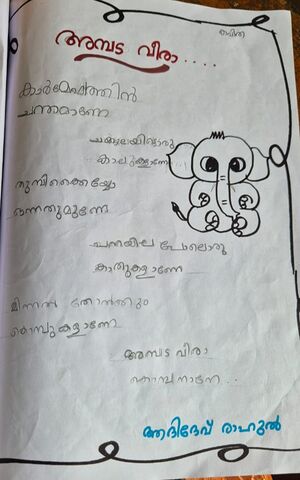 കവിത
അമ്പട വീരാ.....
കാർമേഘത്തിൻ
ചന്തമാണേ
കാലുകളാണേ...
തുമ്പിക്കൈയ്യോ
ഒന്നതുമുണ്ടേ
ചേമ്പില പോലൊരു
കാതുകളാണേ
മിന്നൽ തോൽക്കും
കൊമ്പുകളാണേ
അമ്പട വീരാ
കൊമ്പനാനേ..
ആദിദേവ് രാഹുൽ